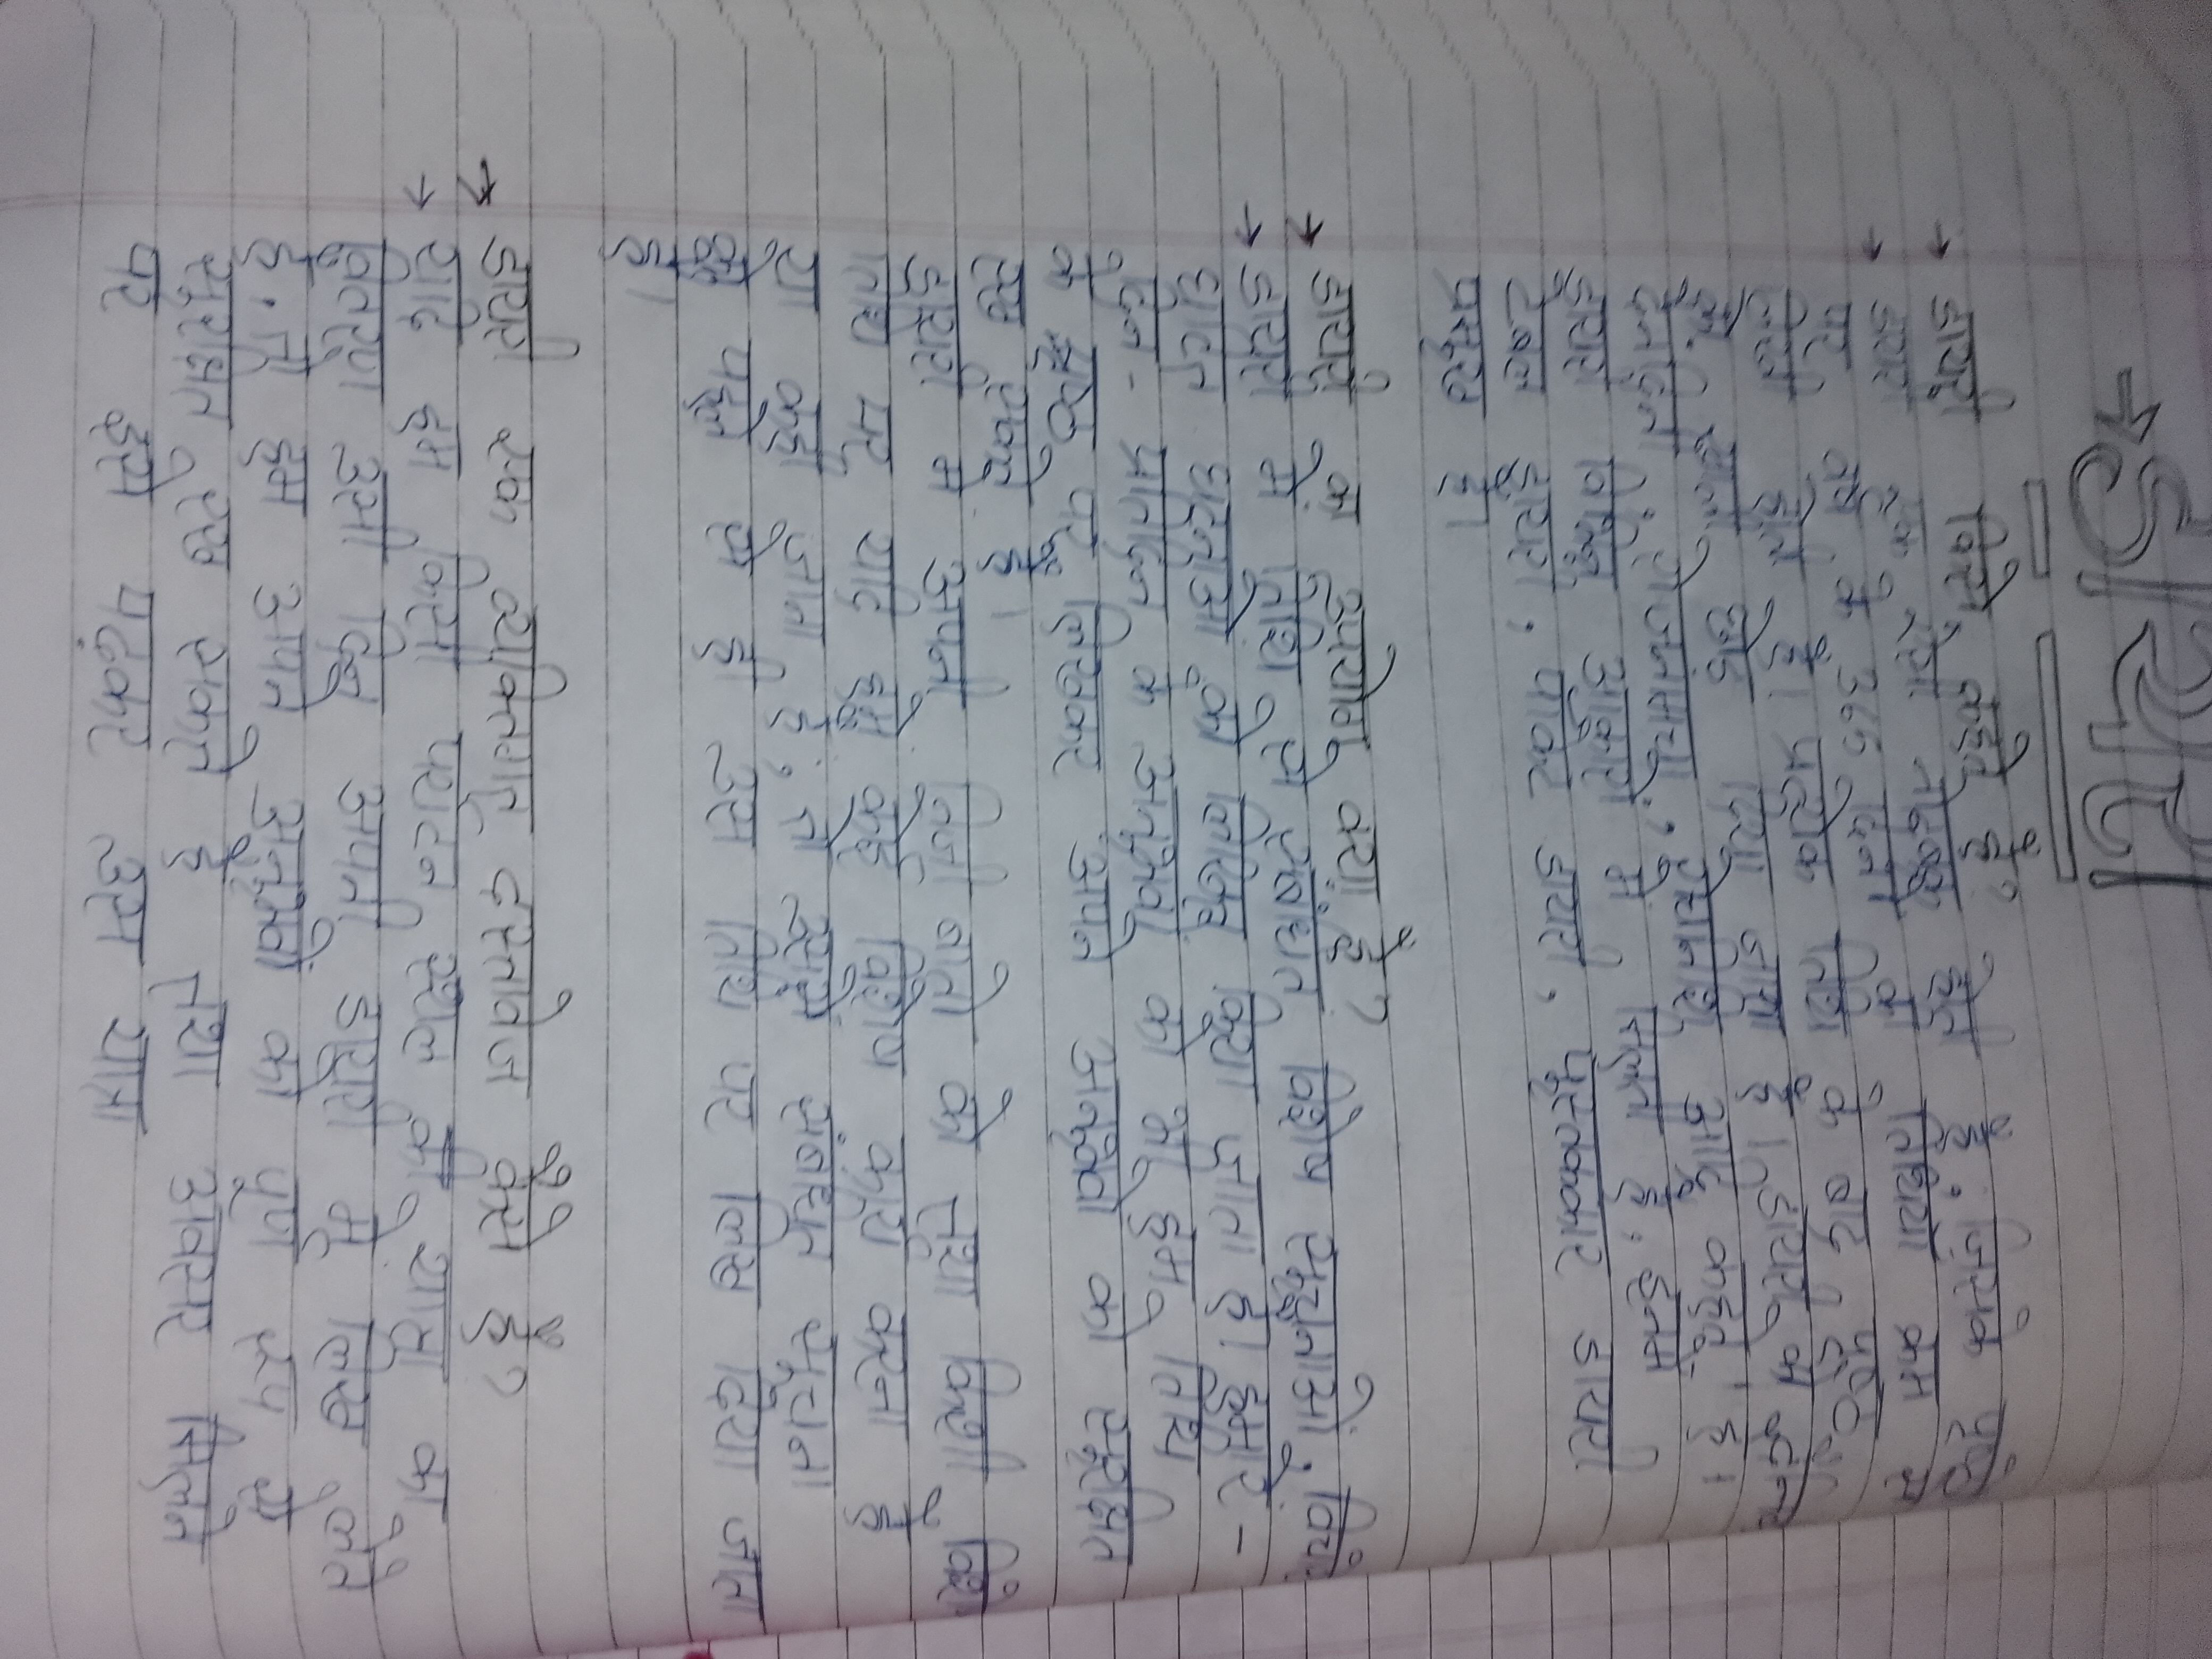 डायरी किसे कहते है?
डायरी एक ऐसा नोटबुक होती है, जिसके पृष्ठ
पर वर्ष के 365 दिन की तिथियां क्रम से
लिखी होती है। प्रत्येक तिथि के बाद पृष्ठ
को खाली छोड़ दिया जाता है। डायरी को
दैनंदिनी, रोजनामचा, आदि कहते है।
डायरी विभिन्न आकारों में मिलती है, इनमें
टेबल डायरी, पॉकेट डायरी, पुस्तकाकार डायरी
प्रमुख है।
डायरी का उपयोग क्या है?
डायरी में तिथि से संबंधित विशेष सूचनाओं,
घटित घटनाओं को लिखा किया जाता है। हमारे-
दिन- प्रतिदिन के अनुभवों को भी हम तिथि
के पृष्ठ पर लिखकर अपने अनुभवों को सुरक्षित
रख सकते है।
डायरी में अपनी निजी बातों को तथा किसी
तिथि पर यदि हमें कोई विशेष कार्य करना है
या कही जाना है, तो उससे संबंधित सूचना
को पहले से ही उस तिथि पर लिख दिया जाता
है।
डायरी एक व्यक्तिगत दस्तावेज कैसे है?
यदि हम किसी पर्यटन स्थल की यात्रा का
विवरण उसी दिन अपनी डायरी में लिख लेते
है, तो हम अपने अनुभवों को पूर्ण रूप से
सुरक्षित रख सकते है तथा अवसर मिलने
पर इसे पढ़कर उस यात्रा